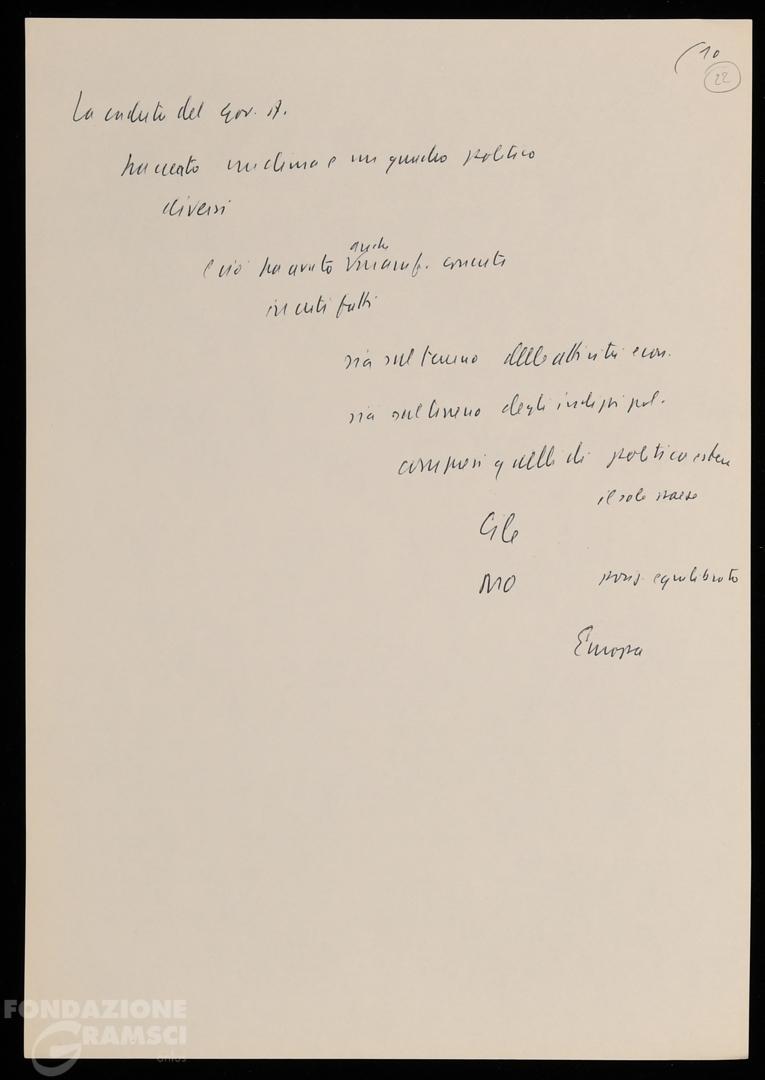 10
22
La caduta del gov. A.
ha creato un clima e un quadro politico
diversi
e ciò ha avuto anche una manif. concreta
in certi fatti
sia sul terreno delle attività econ.
sia sul terreno degli indirizzi pol.
compresi quelli di politica estera
il solo paese
Cile
MO posiz. equilibrata
Europa
FONDAZIONE
GRAMSCI
onlus